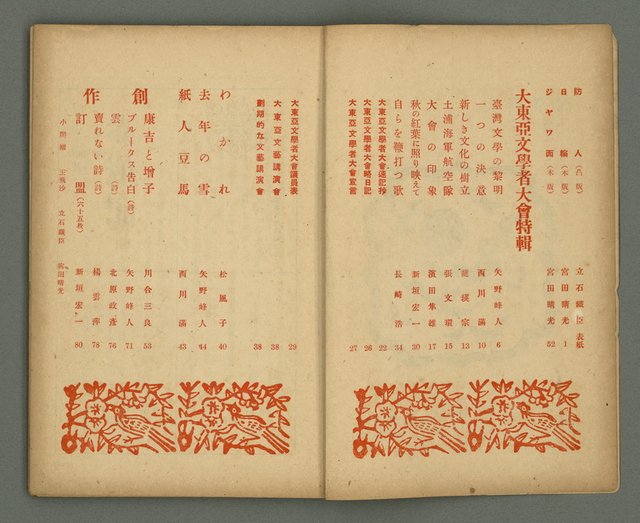 防人(名版) 立石鐵臣 表紙
日輪(木版) 宮田晴光 1
ジヤワ面(木版) 宮田晴光 52
大東亞文學者大會特輯
臺灣文學の黎明 矢野峰人 6
一つの決意 西川滿 10
新しき文化の樹立 龍瑛宗 13
土浦海軍航空隊 張文環 15
大會の印象 濱田隼雄 17
秋の紅葉に照り映えて 新垣宏一 30
自らを鞭打つ歌 長崎浩 34
大東亞文學者大會速記抄 22
大東亞文學者大會略日記 26
大東亞文學者大會宣言 27
大東亞文學者大會議員表 29
大東亞文藝講演會 38
劃期的な文藝講演會 38
わかれ 松風子 40
去年の雪 矢野峰人 44
紙人豆馬 西川滿 43
創作
康吉と增子 川合三良 53
ブルークス告白(詩) 矢野峰人 71
雲(詩) 北原政彥 76
賣れない詩(詩) 楊雲萍 78
訂盟(六十五枚) 新垣宏一 80
小間繪 王 立石鐵臣 宮田晴光